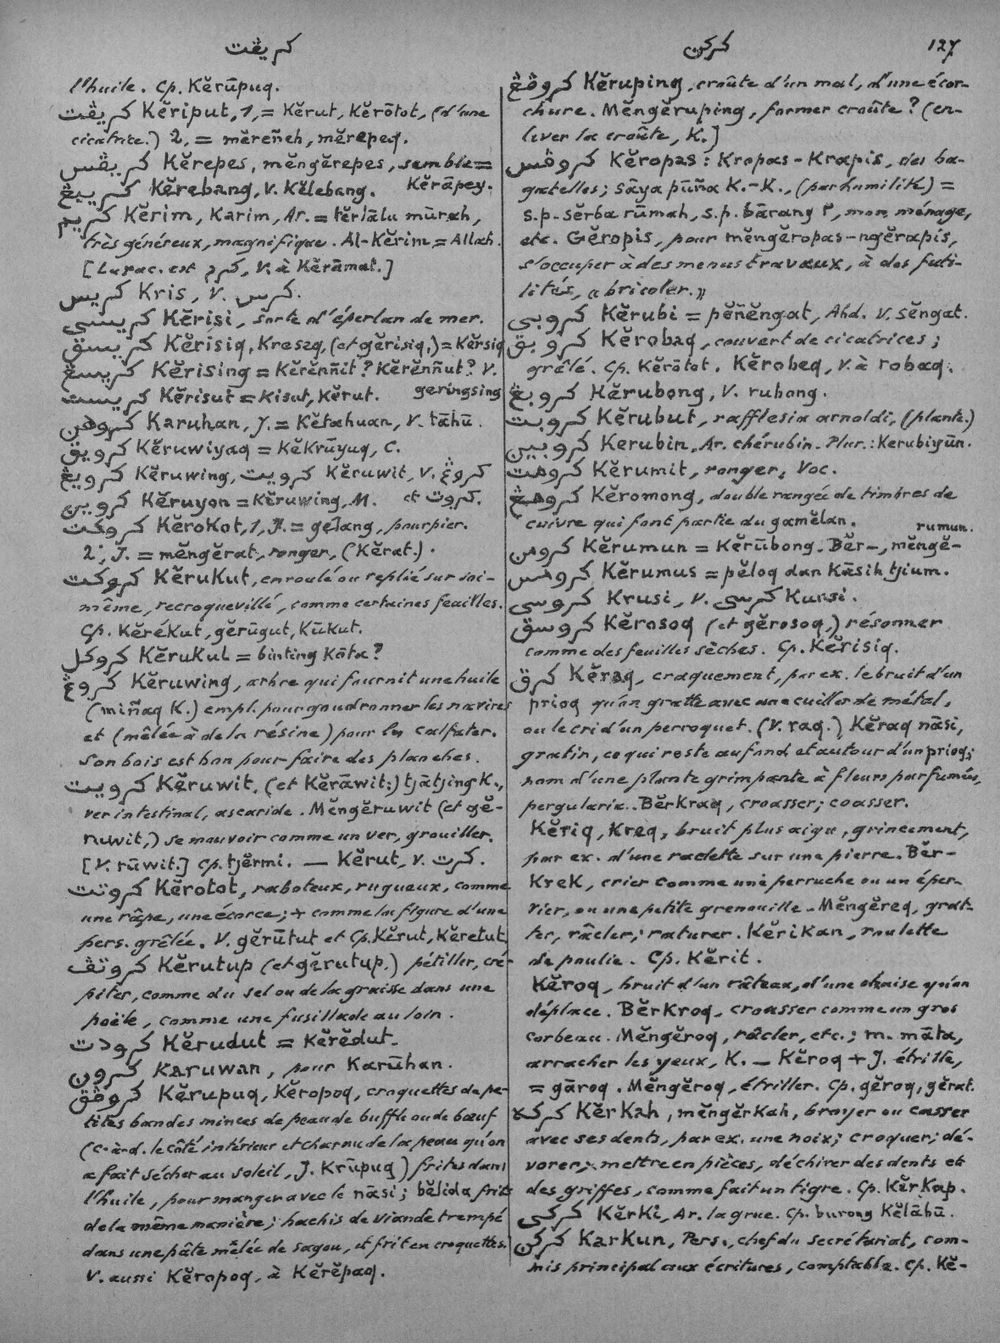 كريڤت
كركن
127
l'huile. Cp. Kĕrūpuq.
كريڤت Kĕriput, 1, = Kĕrut, Kĕrōtot, (d'une
cicatrice.) 2, = mĕrĕñeh, mĕrepeq.
كريڤس Kĕrepes, mĕngĕrepes, semble =
Kĕrāpey.
كريبڠ Kĕrebang, V. Kĕlebang.
كريم Kĕrim, Karim, Ar. = tĕrlālu mūrah,
très généreux, magnifique. Al-Kĕrim = Allah.
[La rac. est كرم, V. à Kĕrāmat.]
كريس Kris, V. كرس.
كريسي Kĕrisi, sorte d'éperlan de mer.
كريسق Kĕrisiq, Kresəq, (et gĕrisiq,) = Kĕrsiq
كريسڠ Kĕrising = Kĕrĕnñit? Kĕrĕnñut? V.
geringsing
كريست Kĕrisut = Kisut, Kĕrut.
كروهن Karuhan, J. = Kĕtahuan, V. tāhū.
كرويق Kĕruwiyaq = Kĕkrūyuq, C.
كرويڠ Kĕruwing, كرويت Kĕruwit, V. كروڠ
et كروت.
كروين Kĕruyon = Kĕruwing, M.
كروكت Kĕrokot, 1, J. = gelang, pourpier.
2, J. = mĕngĕrat, ronger, (Kĕrat.).
كروكت Kĕrukut, enroulé ou replié sur soi-
même, recroquevillé, comme certaines feuilles.
Cp. Kĕrékut, gĕrūgut, Kūkut.
كروكل Kĕrukul = binting Kāta?
كروڠ Kĕruwing, arbre qui fournit une huile
(miñaq K.) empl. pour goudronner les navires
et (mêlée à de la résine) pour les calfater.
Son bois est bon pour faire des planches.
كرويت Kĕruwit, (et Kĕrāwit:) tjātjing K.,
ver intestinal, ascaride. Mĕngĕruwit (et gĕ-
ruwit,) se mouvoir comme un ver, grouiller.
[V. rūwit.] Cp. tjĕrmi. — Kĕrut, V. كرت.
كروتت Kĕrotot, raboteux, rugueux, comme
une râpe, une écorce; + comme la figure d'une
pers. grêlée. V. gĕrūtut et Cp. Kĕrut, Kĕretut
كروتڤ Kĕrutup (et gĕrutup,) pétiller, cré-
piter, comme du sel ou de la graisse dans une
poêle, comme une fusillade au loin.
كرودت Kĕrudut = Kĕrĕdut.
كرون Karuwan, pour Karūhan.
كروڤق Kĕrupuq, Kĕropoq, croquettes de pe-
tites bandes minces de peau de buffle ou de bœuf
(c-à-d. le côté intérieur et charnu de la peau qu'on
a fait sécher au soleil, J. Krūpuq) frites dans
l'huile, pour manger avec le nāsi; bĕlida frit
de la même manière; hachis de viande trempé
dans une pâte mêlée de sagou, et frit en croquettes.
V. aussi Kĕropoq, à Kĕrĕpaq.
كروڤڠ Kĕruping, croûte d'un mal, d'une écor-
chure. Mĕngĕruping, former croûte? (en-
lever la croûte, K.)
كروڤس Kĕropas: Kropas-Krapis, des ba-
gatelles; sāya pūña K.-K., (par humilité) =
s.p. sĕrba rūmah, s.p. bārang², mon ménage,
etc. Gĕropis, pour mĕngĕropas-ngĕrapis,
s'occuper à des menus travaux, à des futi-
lités, « bricoler. »
كروبي Kĕrubi = pĕñĕngat, Ahd. V. sĕngat.
كروبق Kĕrobaq, couvert de cicatrices;
grêlé. Cp. Kĕrōtot. Kĕrobeq, V. à robaq.
كروبڠ Kĕrubong, V. rubong.
كروبت Kĕrubut, rafflesia arnoldi, (plante.)
كروبين Kerubin, Ar. chérubin. Plur.: Kerubiyūn.
كرومت Kĕrumit, ronger, Voc.
كرومڠ Kĕromong, double rangée de timbres de
cuivre qui font partie du gamĕlan.
rumun.
كرومن Kĕrumun = Kĕrūbong. Bĕr-, mĕngĕ-
كرومس Kĕrumus = pĕloq dan Kāsih tjium.
كروسي Krusi, V. كرسي Kursi.
كروسق Kĕrosoq (et gĕrosoq,) résonner
comme des feuilles sèches. Cp. Kĕrisiq.
كرق Kĕraq, craquement, par ex. le bruit d'un
prioq qu'on gratte avec une cuiller de métal,
ou le cri d'un perroquet. (V. raq.) Kĕraq nāsi,
gratin, ce qui reste au fond et autour d'un prioq;
nom d'une plante grimpante à fleurs parfumées,
pergularia. Bĕrkraq, croasser; coasser.
Kĕriq, Kreq, bruit plus aigu, grincement,
par ex. d'une raclette sur une pierre. Bĕr-
Krek, crier comme une perruche ou un éper-
vier, ou une petite grenouille. Mĕngĕreq, grat-
ter, râcler; raturer. Kĕrikan, roulette
de poulie. Cp. Kĕrit.
Kĕroq, bruit d'un râteau, d'une chaise qu'on
déplace. Bĕrkroq, croasser comme un gros
corbeau. Mĕngĕroq, râcler, etc.; m. māta,
arracher les yeux, K. — Kĕroq + J. étrille,
= gāroq. Mĕngĕroq, étriller. Cp. gĕroq, gĕrat.
كركه Kĕrkah, mĕngĕrkah, broyer ou casser
avec ses dents, par ex. une noix; croquer; dé-
vorer; mettre en pièces, déchirer des dents et
des griffes, comme fait un tigre. Cp. Kĕrkap.
كركي Kĕrki, Ar. la grue. Cp. burong Kĕlābū.
كركن Karkun, Pers., chef du secrétariat, com-
mis principal aux écritures, comptable. Cp. Kĕ-